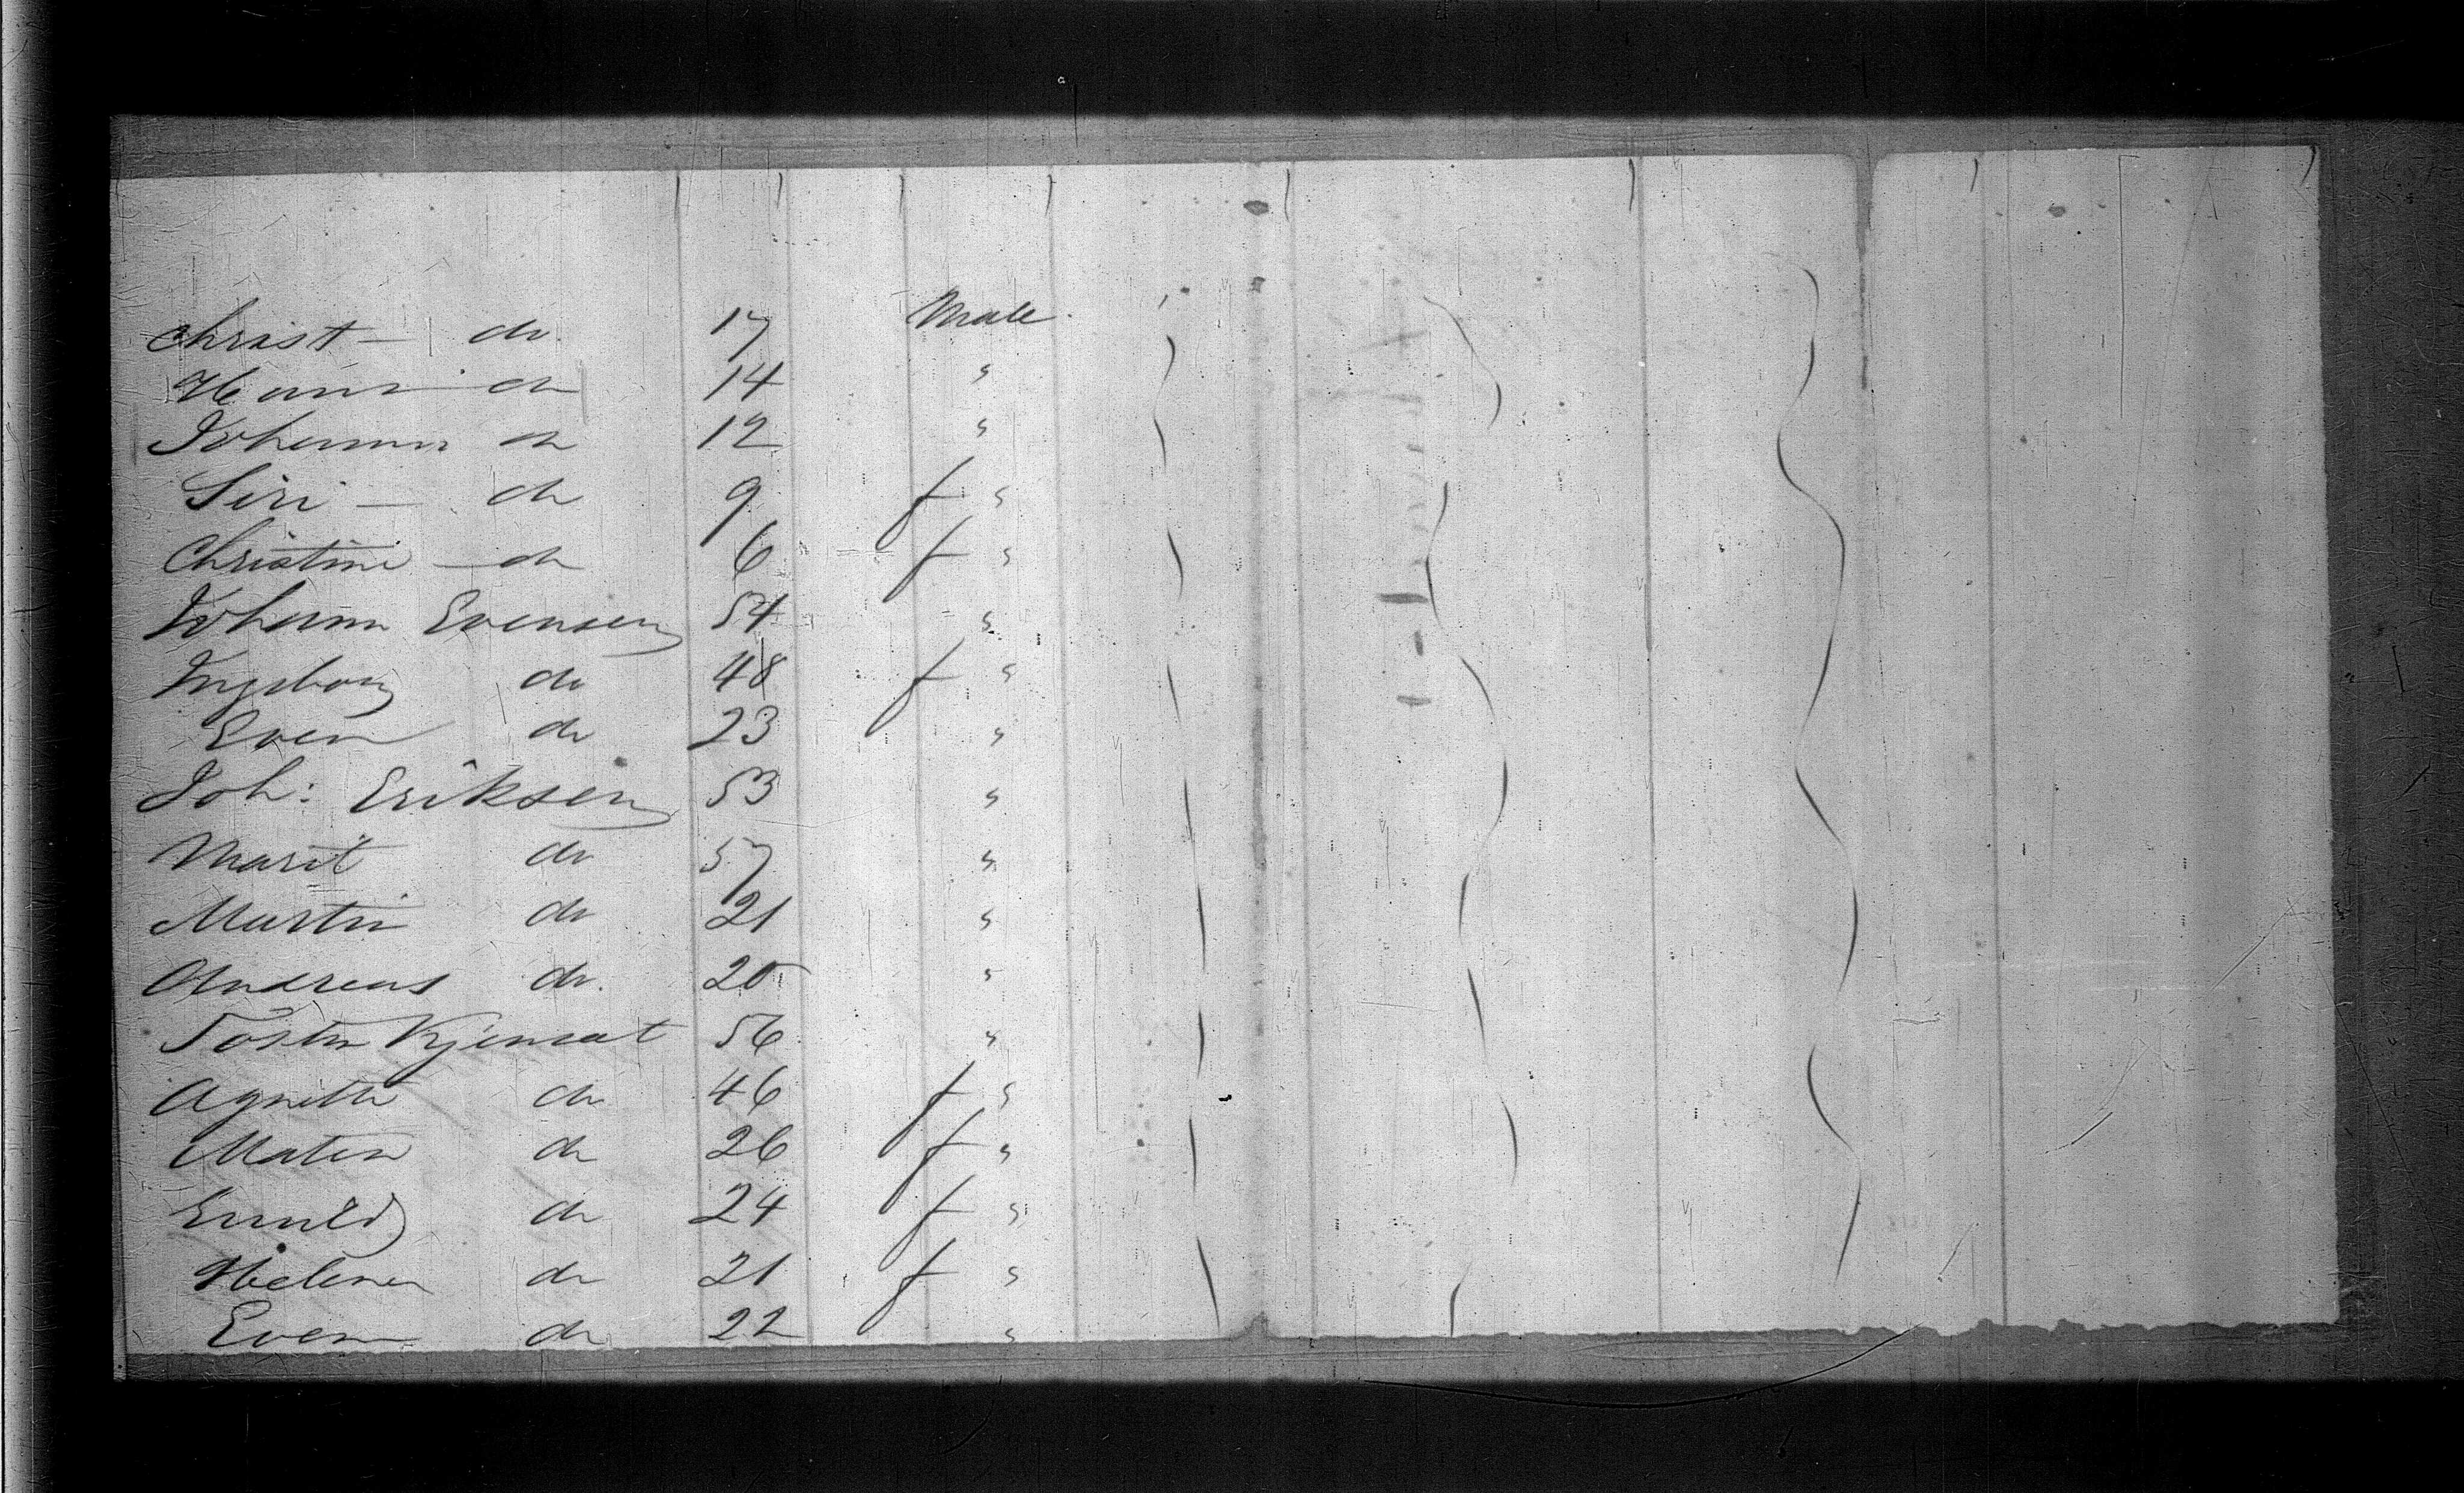 Christ — do 17 Male
Hans do 14 "
Johann do 12 "
Siri — do 9 f "
Christine — do 6 f "
Johann Evensen 54 "
Ingebor do 48 f "
Even do 23 "
Joh: Eriksen 53 "
Marit do 57 "
Martin do 21 "
Andreas do. 20 "
Tosten 56 "
Agnethe do 46 f "
Maten do 26 f "
do 24 f "
Helene do 21 f "
Even do 22 "